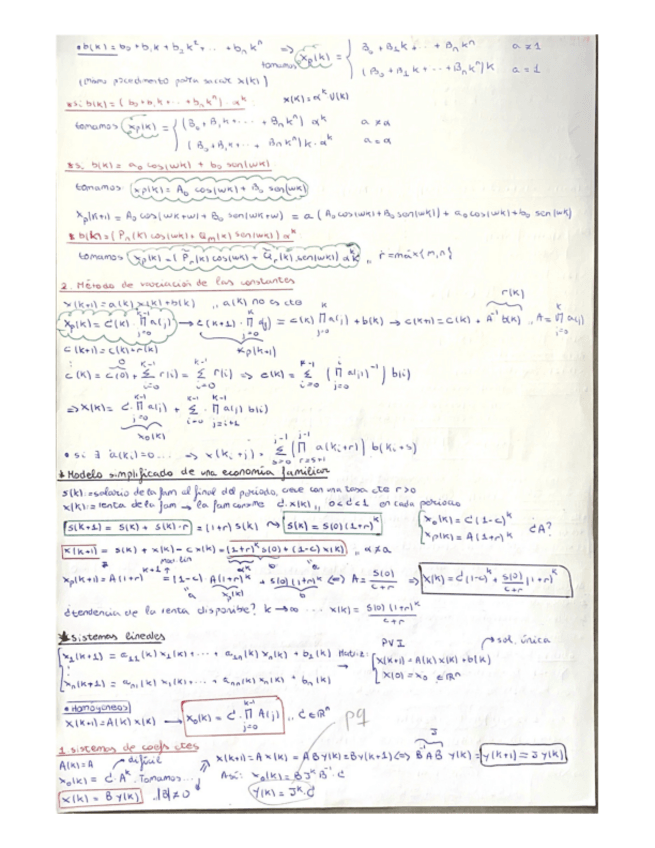 • b(k) = b₀ + b₁k + b₂k² + ... + bₙkⁿ ⇒ tomamos xp(k) = { B₀ + B₁k + ... + Bₙkⁿ a≠1
(B₀ + B₁k + ... + Bₙkⁿ)k a=1
(mismo procedimiento para sacar x(k))
* si b(k) = (b₀ + b₁k + ... + bₙkⁿ) · αᵏ x(k) = αᵏ v(k)
tomamos xp(k) = { (B₀ + B₁k + ... + Bₙkⁿ) αᵏ a≠α
(B₀ + B₁k + ... Bₙkⁿ) k·αᵏ a=α
* si b(k) = a₀ cos(wk) + b₀ sen(wk)
tomamos xp(k) = A₀ cos(wk) + B₀ sen(wk)
xp(k+1) = A₀ cos(wk+w) + B₀ sen(wk+w) = a (A₀ cos(wk) + B₀ sen(wk)) + a₀ cos(wk) + b₀ sen(wk)
* b(k) = (Pₙ(k) cos(wk) + Qₘ(k) sen(wk)) αᵏ
tomamos xp(k) = (P̃ᵣ(k) cos(wk) + Q̃ᵣ(k) sen(wk)) αᵏ ,, r = máx{m,n}
2. Método de variación de las constantes
x(k+1) = a(k) x(k) + b(k) ,, a(k) no es cte r(k)
xp(k) = C(k) · ∏ a(j) → c(k+1) · ∏ aj = c(k) ∏ a(j) + b(k) → c(k+1) = c(k) + A⁻¹ b(k) ,, A = ∏ a(j)
c(k+1) = c(k) + r(k) xp(k+1)
c(k) = c(0) + Σ r(i) = Σ r(i) ⇒ c(k) = Σ (∏ a(j)⁻¹) b(i)
⇒ x(k) = C · ∏ a(j) + Σ · ∏ a(j) b(i)
x₀(k)
• si ∃ a(kᵢ) = 0 ... ⇒ x(kᵢ + j) = Σ (∏ a(kᵢ+r)) b(kᵢ+s)
* Modelo simplificado de una economía familiar
s(k) := salario de la fam al final del periodo, crece con una tasa cte r>0
x(k) := renta de la fam → la fam consume c·x(k) ,, 0<c<1 en cada periodo
s(k+1) = s(k) + s(k)·r = (1+r) s(k) ⇝ s(k) = s(0)(1+r)ᵏ { x₀(k) = C(1-c)ᵏ
xp(k) = A(1+r)ᵏ ¿A?
x(k+1) = s(k) + x(k) - c x(k) = (1+r)ᵏ s(0) + (1-c) x(k) ,, α≠a
xp(k+1) = A(1+r)ᵏ⁺¹ = (1-c) · A(1+r)ᵏ + s(0)(1+r)ᵏ ⇔ A = s(0)/(c+r) ⇒ x(k) = C(1-c)ᵏ + s(0)/(c+r) (1+r)ᵏ
¿tendencia de la renta disponible? k→∞ ... x(k) = s(0)(1+r)ᵏ/(c+r)
* Sistemas lineales
PVI → sol. única
{ x₁(k+1) = a₁₁(k) x₁(k) + ... + a₁ₙ(k) xₙ(k) + b₁(k) → { x(k+1) = A(k) x(k) + b(k)
xₙ(k+1) = aₙ₁(k) x₁(k) + ... + aₙₙ(k) xₙ(k) + bₙ(k) x(0) = x₀ ∈ ℝⁿ
• Homogéneos
x(k+1) = A(k) x(k) → x₀(k) = C · ∏ A(j) ,, C ∈ ℝⁿ pq
1 sistemas de coefs ctes
A(k) = A difícil x(k+1) = A x(k) = A B y(k) = B y(k+1) ⇔ B⁻¹ A B y(k) = y(k+1) = J y(k)
x₀(k) = C·Aᵏ. Tomamos... Así: x₀(k) = B Jᵏ B⁻¹ · C
x(k) = B y(k) ,, |B|≠0 y(k) = Jᵏ · C